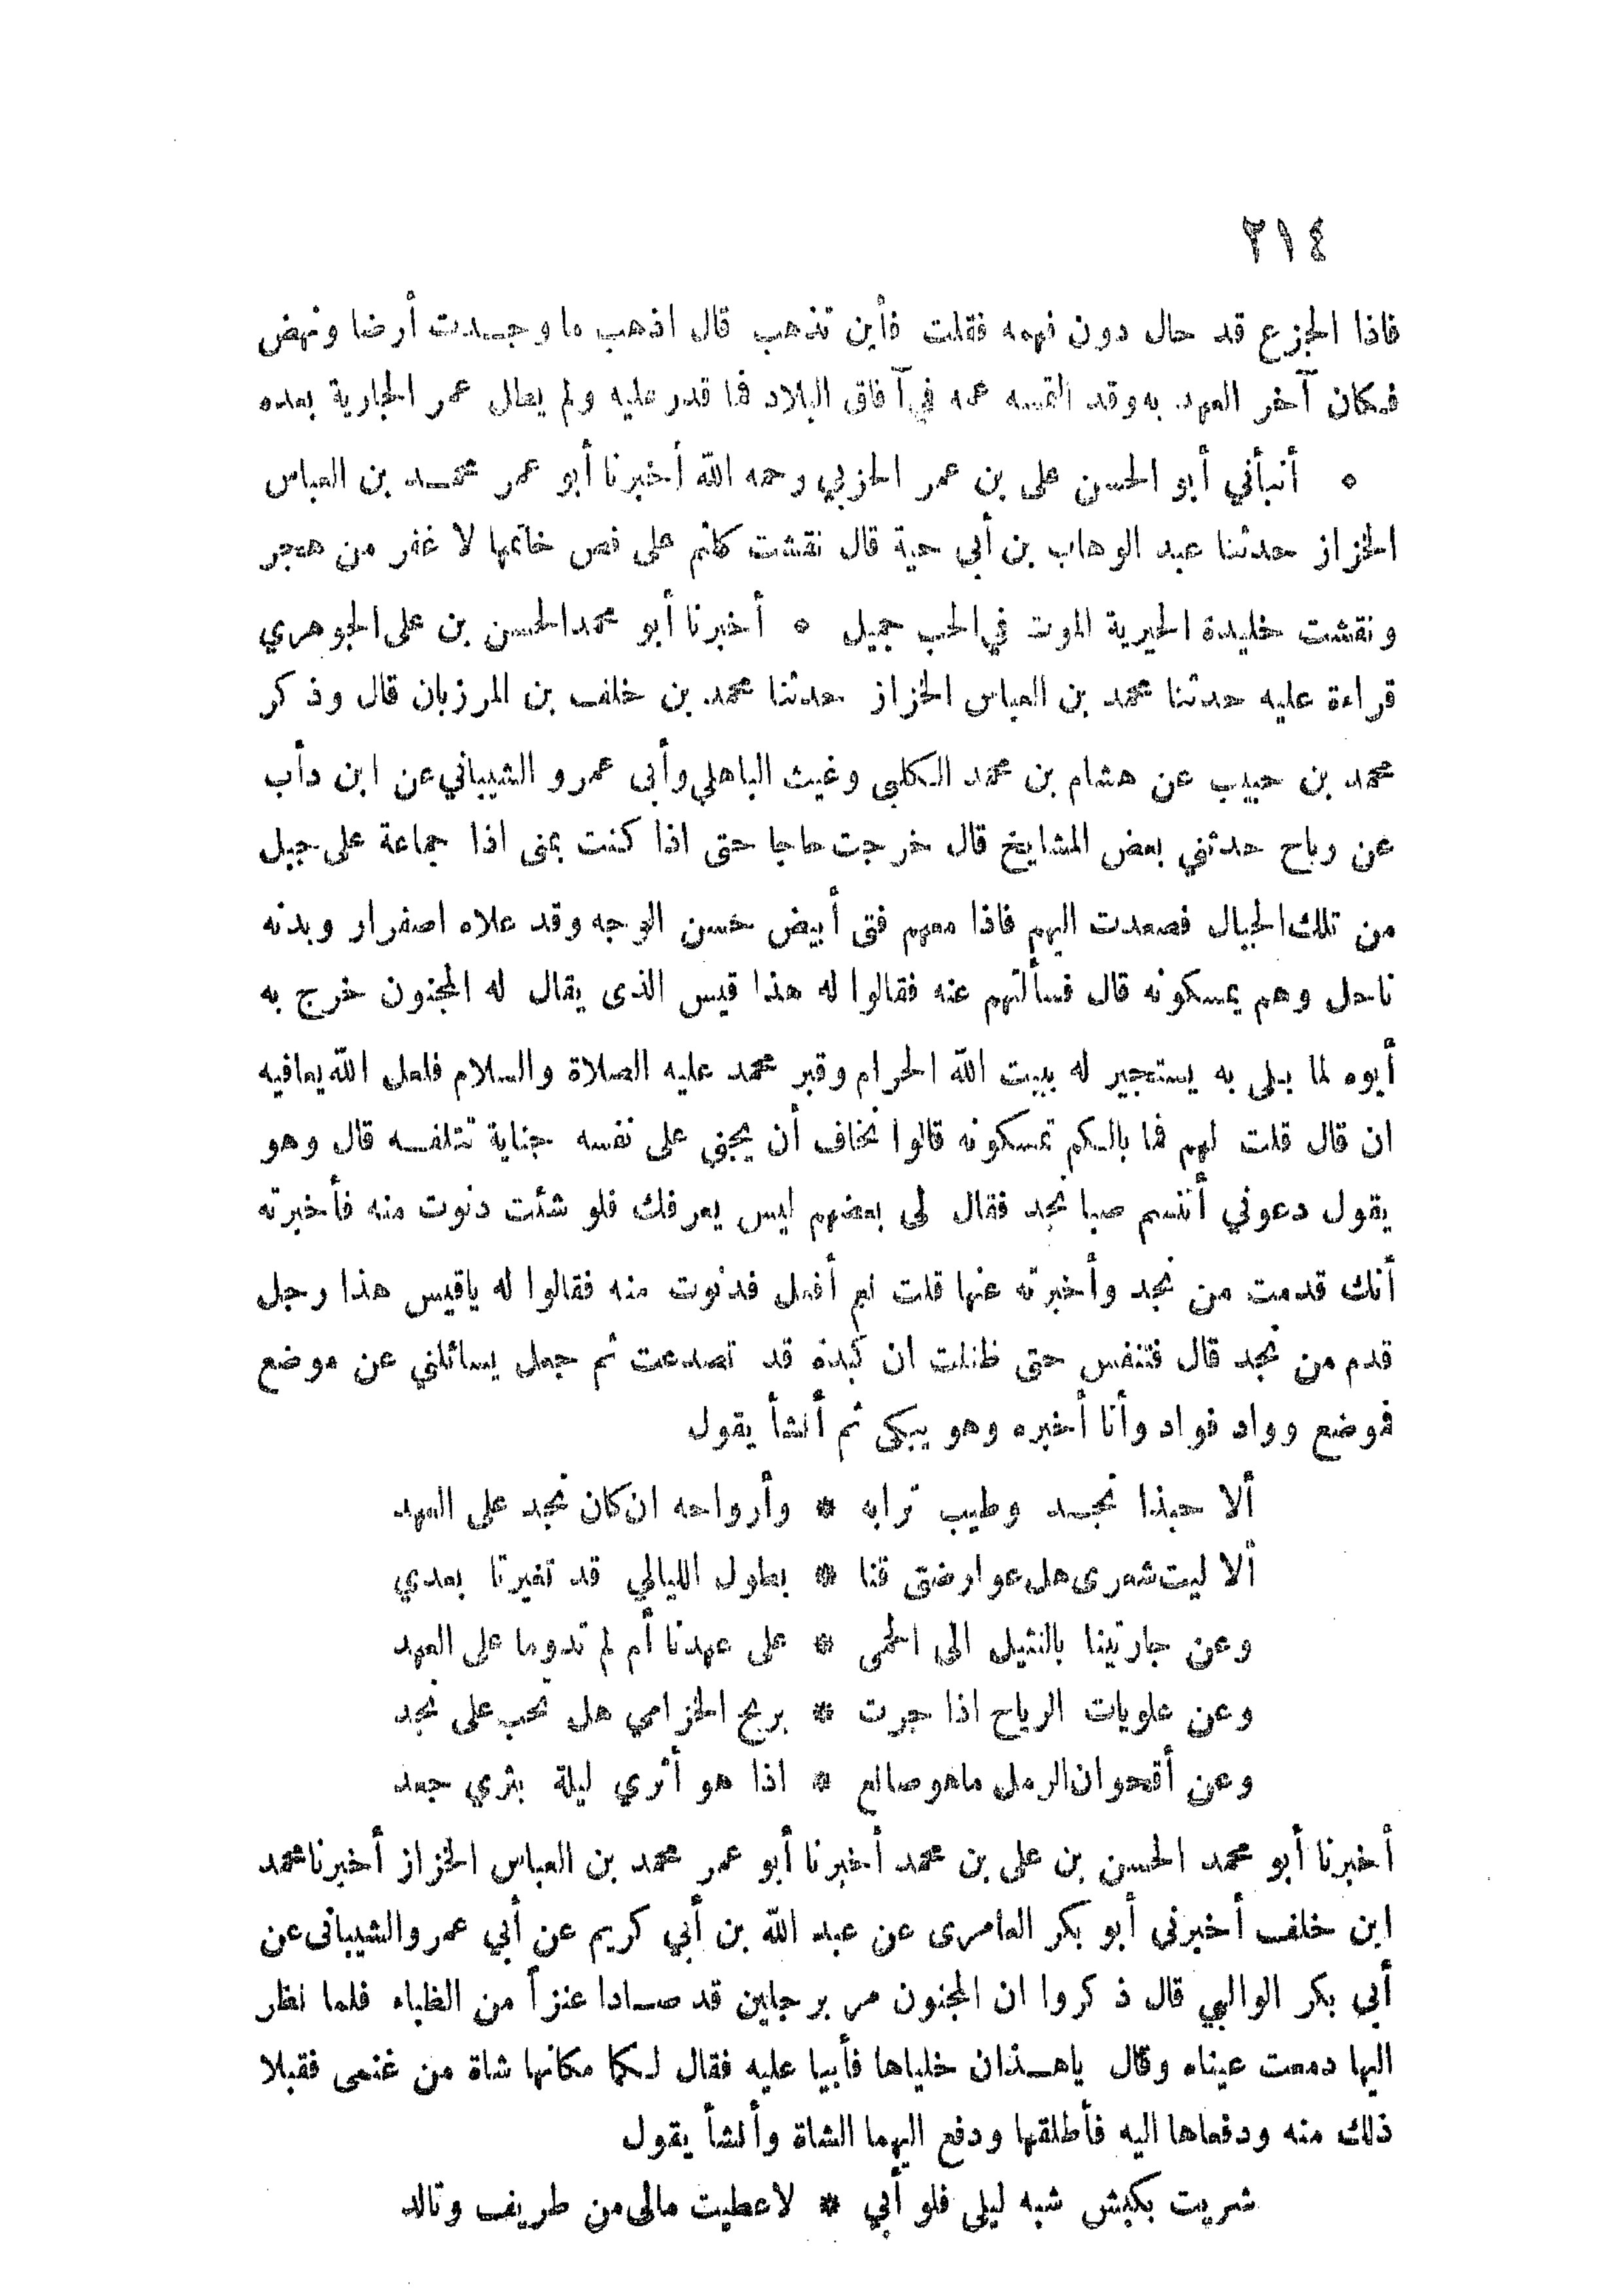 ٢١٤
فاذا الجزع قد حال دون فهمه فقلت فأين تذهب قال اذهب ما وجدت أرضا ونهض
فكان آخر العهد به وقد التمسه عمه في آفاق البلاد فما قدر عليه ولم يطل عمر الجارية بعده
٥ أنبأني أبو الحسن على بن عمر الحزبي رحمه الله أخبرنا أبو عمر محمد بن العباس
الخزاز حدثنا عبد الوهاب بن أبي حية قال نقشت كاتم على فص خاتمها لا غفر من هجر
ونقشت خليدة الحيرية الموت في الحب جميل ٥ أخبرنا أبو محمد الحسن بن على الجوهري
قراءة عليه حدثنا محمد بن العباس الخزاز حدثنا محمد بن خلف بن المرزبان قال وذكر
محمد بن حبيب عن هشام بن محمد الكلبى وغيث الباهلي وأبى عمرو الشيباني عن ابن دأب
عن رباح حدثني بعض المشايخ قال خرجت حاجا حتى اذا كنت بمنى اذا جماعة على جبل
من تلك الجبال فصعدت اليهم فاذا معهم فتى أبيض حسن الوجه وقد علاه اصفرار وبدنه
ناحل وهم يمسكونه قال فسألتهم عنه فقالوا له هذا قيس الذى يقال له المجنون خرج به
أبوه لما بلى به يستجير له ببيت الله الحرام وقبر محمد عليه الصلاة والسلام فلعل الله يعافيه
ان قال قلت لهم فما بالكم تمسكونه قالوا نخاف أن يجنى على نفسه جناية تتلفه قال وهو
يقول دعوني أتنسم صبا نجد فقال لى بعضهم ليس يعرفك فلو شئت دنوت منه فأخبرته
أنك قدمت من نجد وأخبرته عنها قلت نعم أفعل فدنوت منه فقالوا له ياقيس هذا رجل
قدم من نجد قال فتنفس حتى ظننت ان كبده قد تصدعت ثم جعل يسائلني عن موضع
فموضع وواد فواد وأنا أخبره وهو يبكى ثم أنشأ يقول
ألا حبذا نجد وطيب ترابه * وأرواحه ان كان نجد على العهد
ألا ليت شعرى هل عوارضتى قنا * بطول الليالي قد تغيرتا بعدي
وعن جارتينا بالنثيل الى الحمى * على عهدنا أم لم تدوما على العهد
وعن علويات الرياح اذا جرت * بريح الخزامي هل تهب على نجد
وعن أقحوان الرمل ماهو صانع * اذا هو أثري ليلة بثري جعد
أخبرنا أبو محمد الحسن بن على بن محمد أخبرنا أبو عمر محمد بن العباس الخزاز أخبرنا محمد
ابن خلف أخبرنى أبو بكر العامرى عن عبد الله بن أبي كريم عن أبي عمرو الشيبانى عن
أبي بكر الوالبي قال ذكروا ان المجنون مر برجلين قد صادا عنزاً من الظباء فلما نظر
اليها دمعت عيناه وقال ياهذان خلياها فأبيا عليه فقال لكما مكانها شاة من غنمى فقبلا
ذلك منه ودفعاها اليه فأطلقها ودفع اليهما الشاة وأنشأ يقول
شريت بكبش شبه ليلى فلو أبي * لاعطيت مالى من طريف وتالد